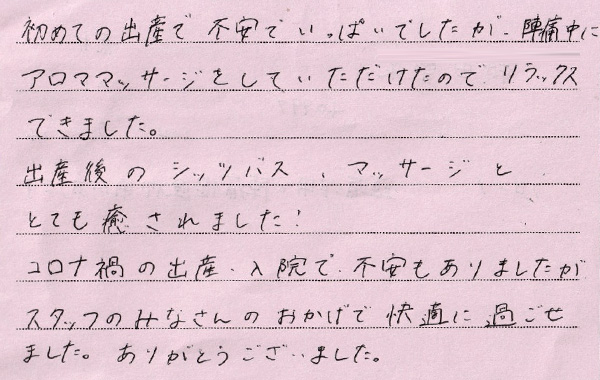 初めての出産で 不安でいっぱいでしたが、陣痛中に
アロママッサージをしていただけたので リラックス
できました。
出産後の シッツバス、マッサージと
とても癒されました!
コロナ禍の出産、入院で、不安もありましたが
スタッフのみなさんの おかげで 快適に 過ごせ
ました。ありがとうございました。